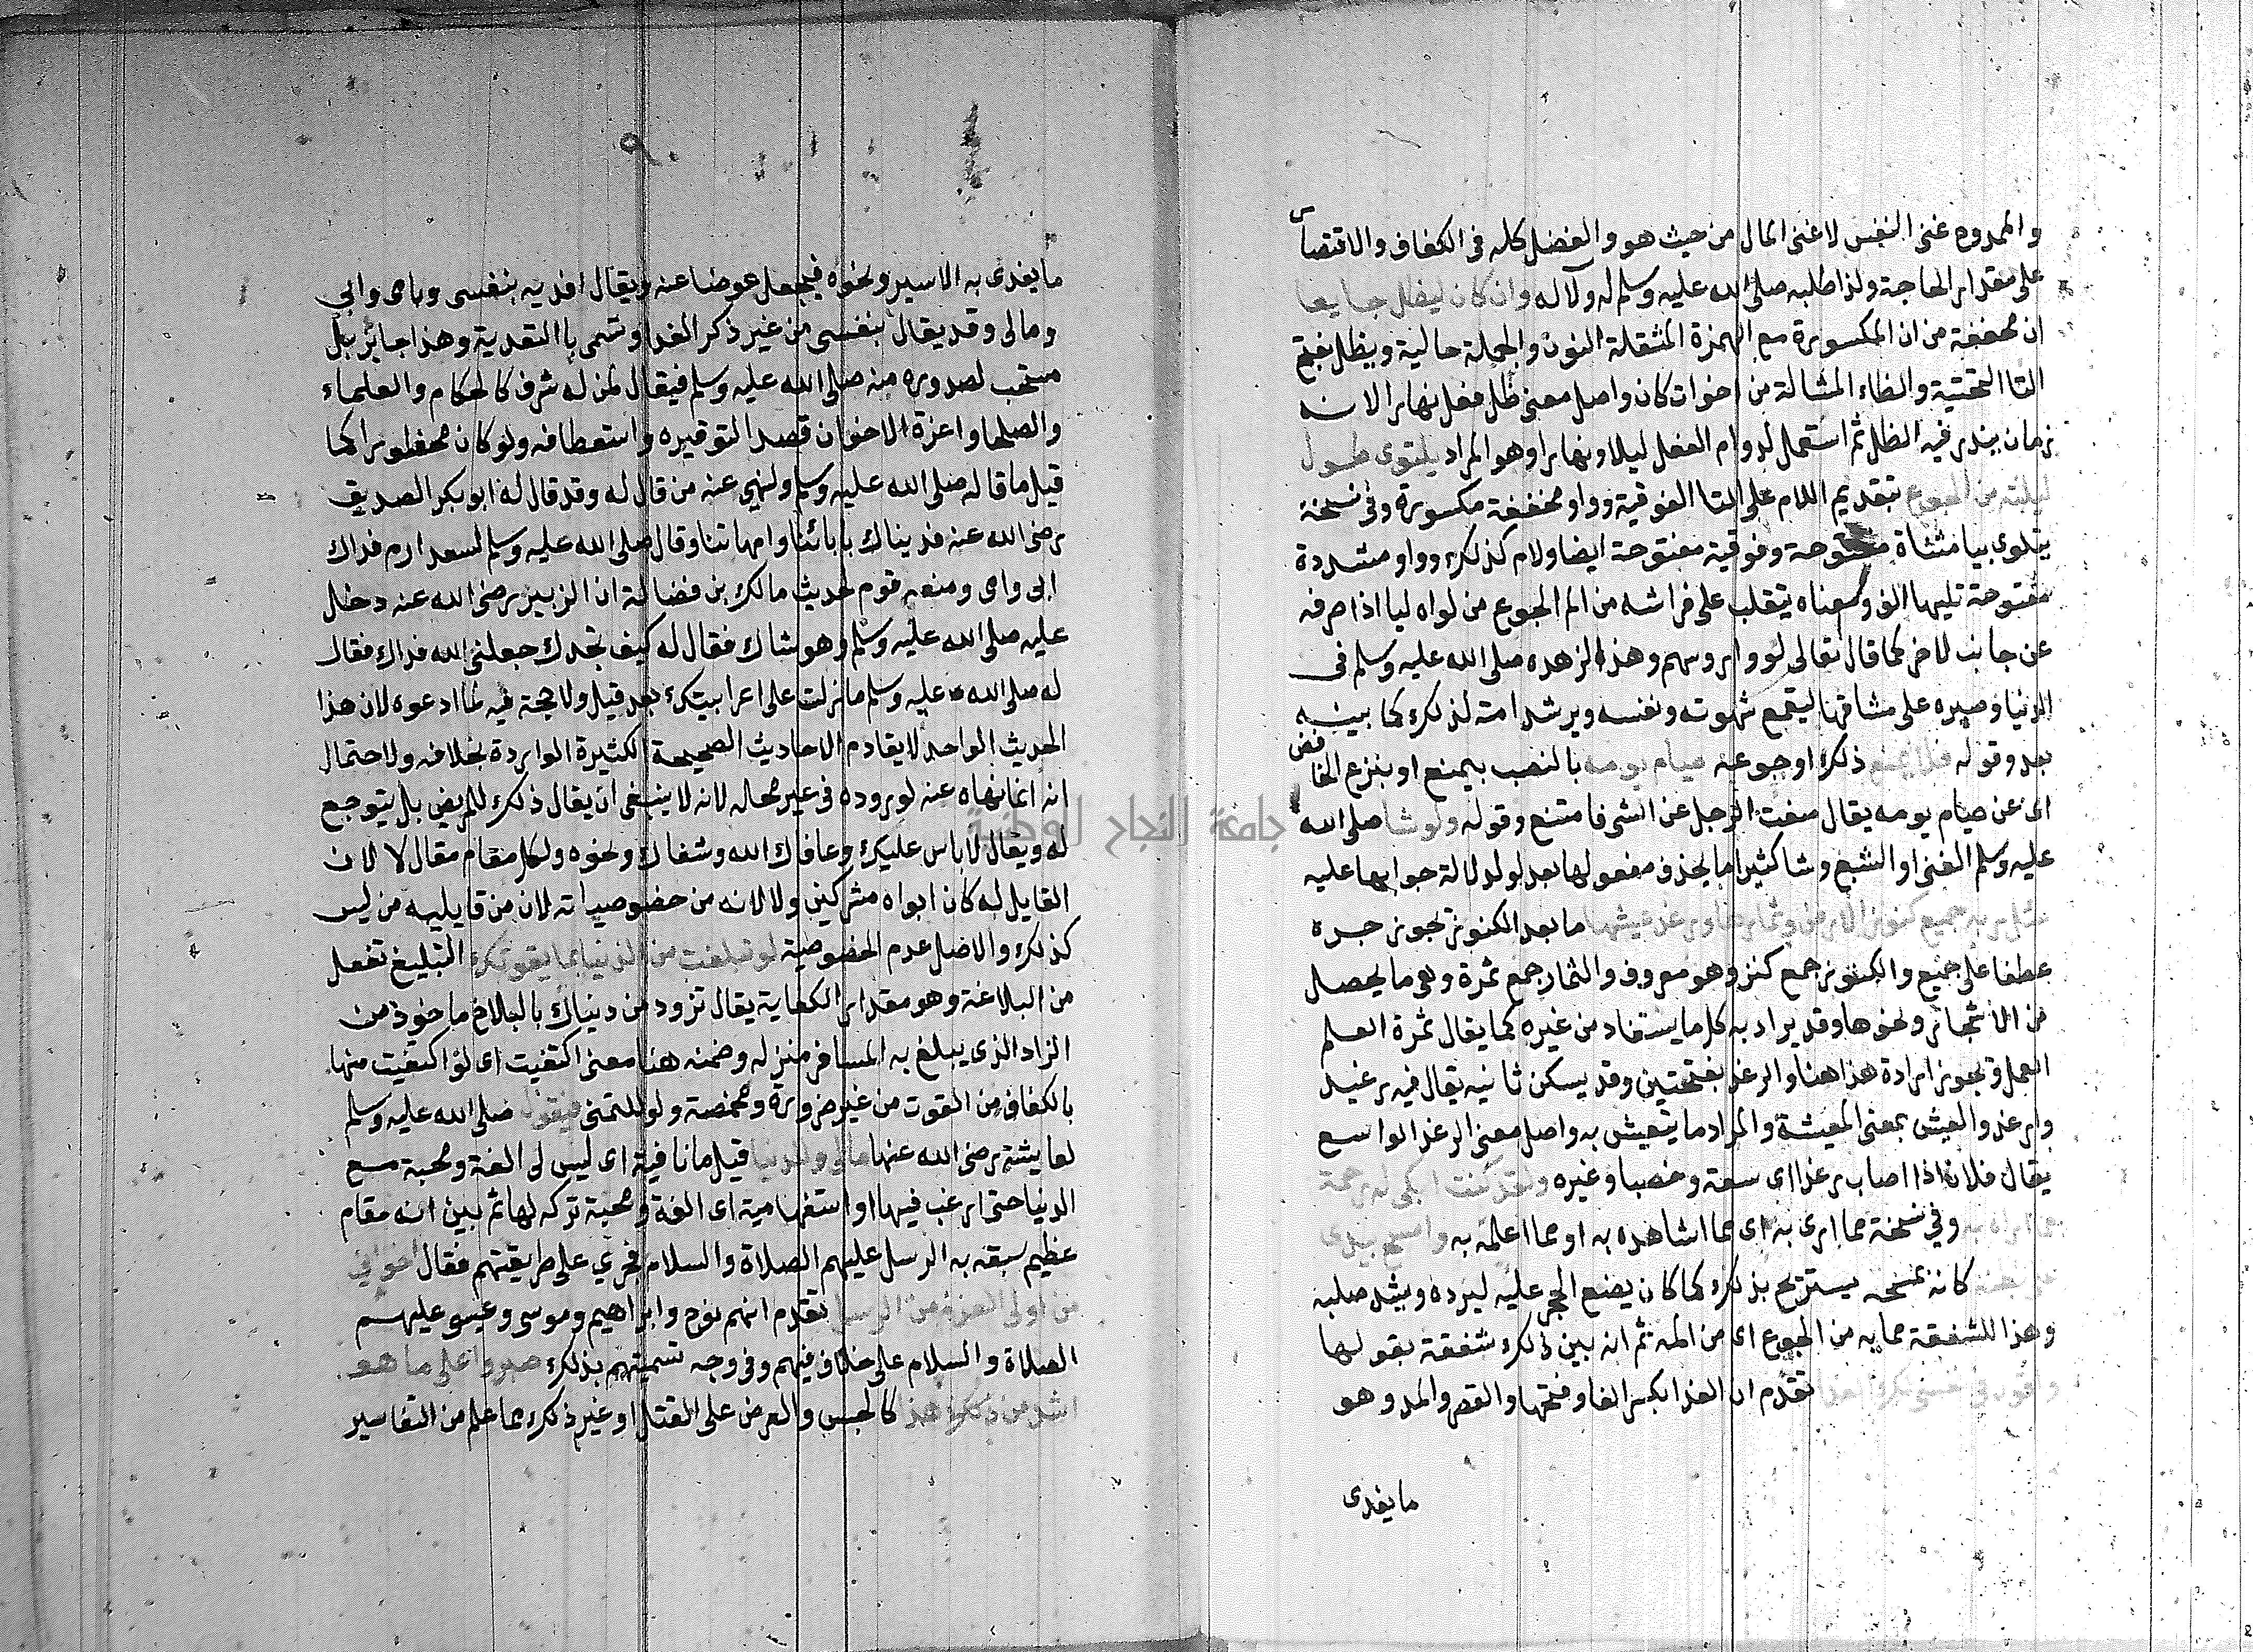 والممدوح غنى النفس لا غنى المال من حيث هو والفضل كله في الكفاف والاقتصاس
على مقدار الحاجة ولذا طلبه صلى الله عليه وسلم له ولآله وان كان ليظل جايعا
ان مخففة من ان المكسورة مع الهمزة المثقلة النون والجملة حالية ويظل بفتح
التا التحتية والظاء المشالة من اخوات كان واصل معنى ظل فعل نهارا لانه
زمان يندر فيه الظل ثم استعمل لدوام الفعل ليلا ونهارا وهو المراد يلتوى طول
ليلته من الجوع بتقديم اللام على التا الفوقية وواو مخففة مكسورة وفى نسخة
يتلوى بيا مثناة مفتوحة وفوقية مفتوحة ايضا ولام كذلك وواو مشددة
مفتوحة تليها الف ومعناه يتقلب على فراشه من الم الجوع من لواه ليا اذا صرفه
عن جانب لاخر كما قال تعالى لووا روسهم وهذا لزهده صلى الله عليه وسلم فى
الدنيا وصبره على مشاقها ليقمع شهوته ونفسه ويرشد امته لذلك كما بينه
بعد وقوله فلا يمنعه ذلك اى جوعه صيام يومه بالنصب بيمنع او بنزع الخافض
اى عن صيام يومه يقال منعت الرجل عن الشى فامتنع وقوله ولو شا صلى الله
عليه وسلم الغنى او الشبع وشا كثيرا ما يحذف مفعولها بعد لو لدلالة جوابها عليه
سئل ربه جميع كنوز الارض وثمارها ورغد عيشها ما بعد الكنوز يجوز جره
عطفا على جميع والكنوز جمع كنز وهو معروف والثمار جمع ثمرة وهى ما يحصل
من الاشجار ونحوها وقد يراد به كل ما يستفاد من غيره كما يقال ثمرة العلم
العمل ويجوز ارادة هذا هنا والرغد بفتحتين وقد يسكن ثانيه يقال فيه رغيد
وارغد والعيش بمعنى المعيشة والمراد ما يتعيش به واصل معنى الرغد الواسع
يقال فلان اذا اصاب رغدا اى سعة وخصبا وغيره ولقد كنت ابكى له رحمة
مما اراه به وفي نسخة مما ارى به اى مما اشاهده به او مما اعلمه به وامسح بيدى
على بطنه كانه بمسحه يستريح بذلك كما كان يضع الحجر عليه ليبرده ويشد صلبه
وهذا للشفقة مما به من الجوع اى من المه ثم انه بين ذلك شفقة بقولها
واقول نفسى لك الفدا تقدم ان الفدا بكسر الفا وفتحها والقصر والمد وهو
ما يفدى
٩٠
ما يفدى به الاسير ونحوه فيجعل عوضا عنه ويقال افديه بنفسى وبامى وابي
ومالى وقد يقال بنفسى من غير ذكر الفدا وتسمى با التفدية وهذا جائز بل
مستحب لصدوره منه صلى الله عليه وسلم فيقال لمن له شرف كالحكام والعلماء
والصلحا واعزة الاخوان قصد التوقيره واستعطافه ولو كان محظورا كما
قيل ما قاله صلى الله عليه وسلم ولنهي عنه من قال له وقد قال له ابو بكر الصديق
رضى الله عنه فديناك بابائنا وامهاتنا وقال صلى الله عليه وسلم لسعد ارم فداك
ابى وامى ومنعه قوم لحديث مالك بن فضالة ان الزبير رضى الله عنه دخل
عليه صلى الله عليه وسلم وهو شاك فقال له كيف تجدك جعلنى الله فداك فقال
له صلى الله عليه وسلم ما نزلت على اعرابيتك بعد قيل ولا حجة فيه لما ادعوه لان هذا
الحديث الواحد لا يقادم الاحاديث الصحيحة الكثيرة الواردة بخلافه ولاحتمال
انه انما نهاه عنه لوروده فى غير محاله لانه لا ينبغى ان يقال ذلك للمريض بل يتوجع
له ويقال لا باس عليك وعافاك الله وشفاك ونحوه ولكل مقام مقال لا لان
القايل له كان ابواه مشركين ولا لانه من خصوصياته لان من قايليه من ليس
كذلك والاصل عدم الخصوصية لو تبلغت من الدنيا بما يقوتك التبليغ تفعل
من البلاغة وهو مقدار الكفاية يقال تزود من دنياك بالبلاغ ماخوذ من
الزاد الذى يبلغ به المسافر منزله وضمنه هنا معنى اكتفيت اى لو اكتفيت منها
بالكفاف من القوت من غير ضرورة ومخمصة ولو للتمنى فيقول صلى الله عليه وسلم
لعايشة رضى الله عنها مالى وللدنيا قيل ما نافية اى ليس لى الفة ومحبة مع
الدنيا حتى ارغب فيها او استفهامية اى الفة ومحبة تركه لها ثم بين انه مقام
عظيم سبقه به الرسل عليهم الصلاة والسلام فجري على طريقتهم فقال اخواني
من اولى العزم من الرسل تقدم انهم نوح وابراهيم وموسى وعيسى عليهم
الصلاة والسلام على خلاف فيهم وفى وجه تسميتهم بذلك صبروا على ما هو
اشد من ذلك هذا كالحبس والعرض على القتل او غير ذلك مما علم من التفاسير
جامعة النجاح الوطنية